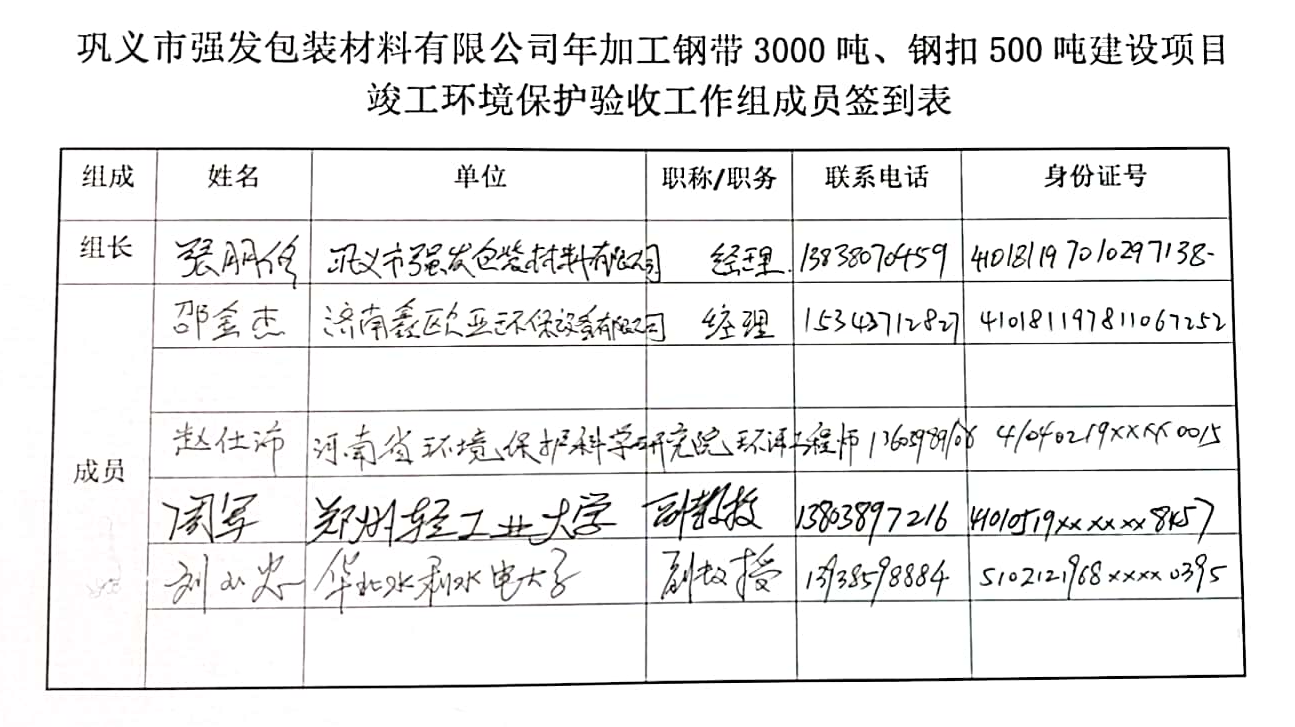 巩义市强发包装材料有限公司年加工钢带 3000 吨、钢扣 500 吨建设项目
竣工环境保护验收工作组成员签到表
组成 姓名 单位 职称/职务 联系电话 身份证号
组长 张朋修 巩义市强发包装材料有限公司 经理 13838070459 410181197010297138
成员
邵金杰 济南鑫欧亚环保设备有限公司 经理 15343712827 410181197811067252
赵仕沛 河南省环境保护科学研究院 环评工程师 13603989108 41040219XXXX0015
周军 郑州轻工业大学 副教授 13803897216 41010519xxxxxx8457
刘小忠 华北水利水电大学 副教授 13938598884 5102121968xxxx0395